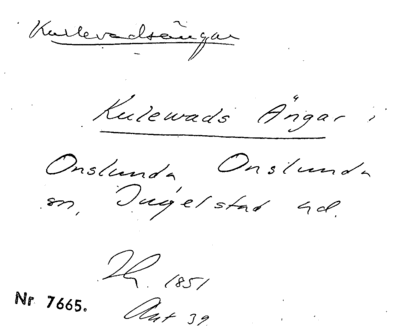 Kullevadsängar
Kulewads Ängar i
Onslunda Onslunda
sn, Ingelstad hd.
Hg. 1851
Akt 39
Nr 7665.